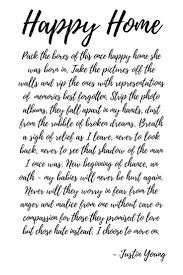 Happy Home
Pack the boxes of this once happy home she
was born in. Take the pictures off the
walls and rip the ones with representations
of memories best forgotten. Strip the photo
albums, they fall apart in my hands, dust
from the rubble of broken dreams. Breath
a sigh of relief as I leave, never to look
back, never to see that shadow of the man
I once was. New beginning of chance, an
oath - my babies will never be hurt again.
Never will they worry in fear from the
anger and malice from one without care or
compassion for those they promised to love
but chose hate instead. I choose to move on.
- Justin Young